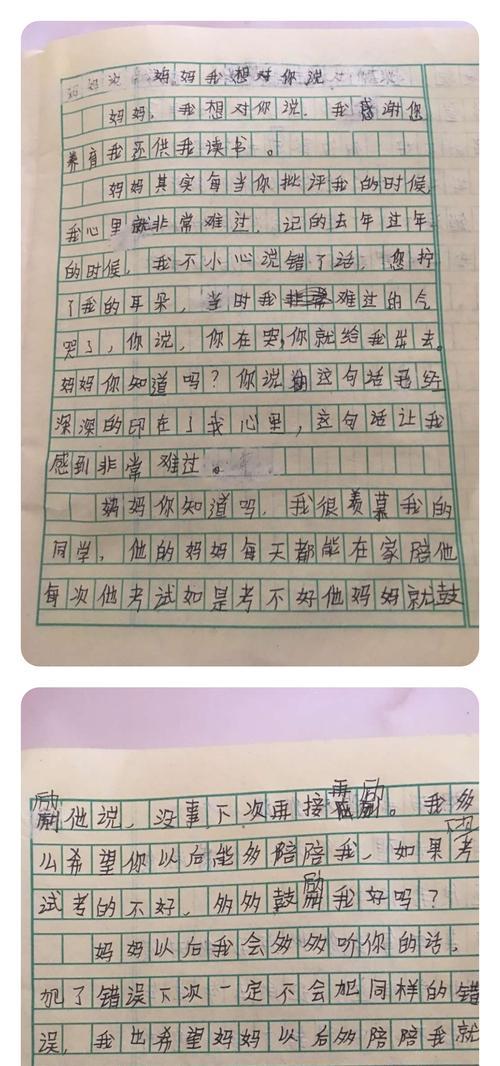 妈妈我想对你说
妈妈，我想对你说，我感谢您
养育我还供我读书。
妈妈其实每当你批评我的时候，
我心里就非常难过，记的去年过年
的时候，我不小心说错了话，您拧
了我的耳朵，当时我难过的气
哭了，你说，你在哭，你就给我出去。
妈妈你知道吗？你说这句话已经
深深的印在了我心里，这句话让我
感到非常难过。
妈妈你知道吗，我很羡慕我的
同学，他的妈妈每天都能在家陪他
每次他考试如是考不好他妈妈就鼓
励他说，没事下次再接再励。我多
么希望你以后能多陪陪我，如果考
试考的不好，多多鼓励我好吗？
妈妈以后我会多多听你的话，
犯了错误下次一定不会犯同样的错
误，我也希望妈妈以后多陪陪我就